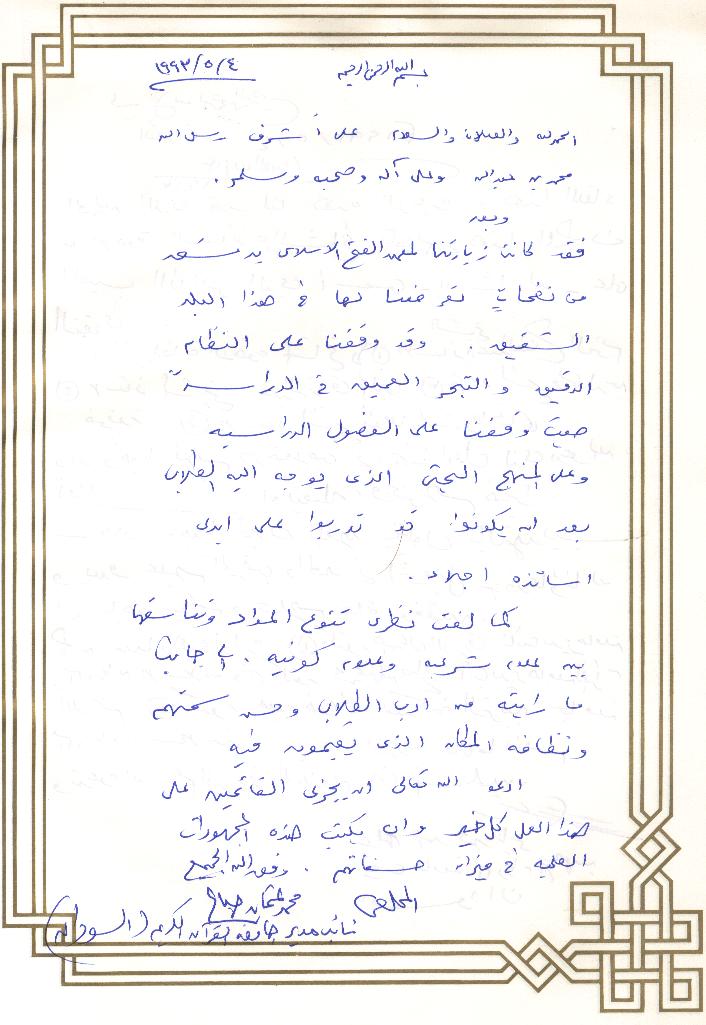 بسم الله الرحمن الرحيم
١٩٩٣/٥/٤
الحمد لله والصلاة والسلام على أشرف رسل الله
محمد بن عبد الله وعلى آله وصحبه وسلم.
وبعد
فقد كانت زيارتنا لمعهد الفتح الاسلامى بدمشق
من نفحات تعرضنا لها في هذا البلد
الشقيق. وقد وقفنا على النظام
الدقيق والتبحر العميق في الدراسة
حيث وقفنا على الفصول الدراسيه
وعلى المنهج البحثى الذى يوجه اليه الطلاب
بعد ان يكونوا قد تدربوا على ايدى
اساتذه اجلاء.
كما لفت نظرى تنوع المواد وتناسقها
بين علوم شرعيه وعلوم كونيه. الى جانب
ما رايته من ادب الطلاب وحسن سمتهم
ونظافه المكان الذى يقيمون فيه
ادعو الله تعالى ان يجزى القائمين على
هذا العمل كل خير وان يكتب هذه المجهودات
العلميه في ميزان حسناتهم. وفق الله الجميع
المخلص
محمد عثمان صالح
نائب مدير جامعة القرآن الكريم (السودان)